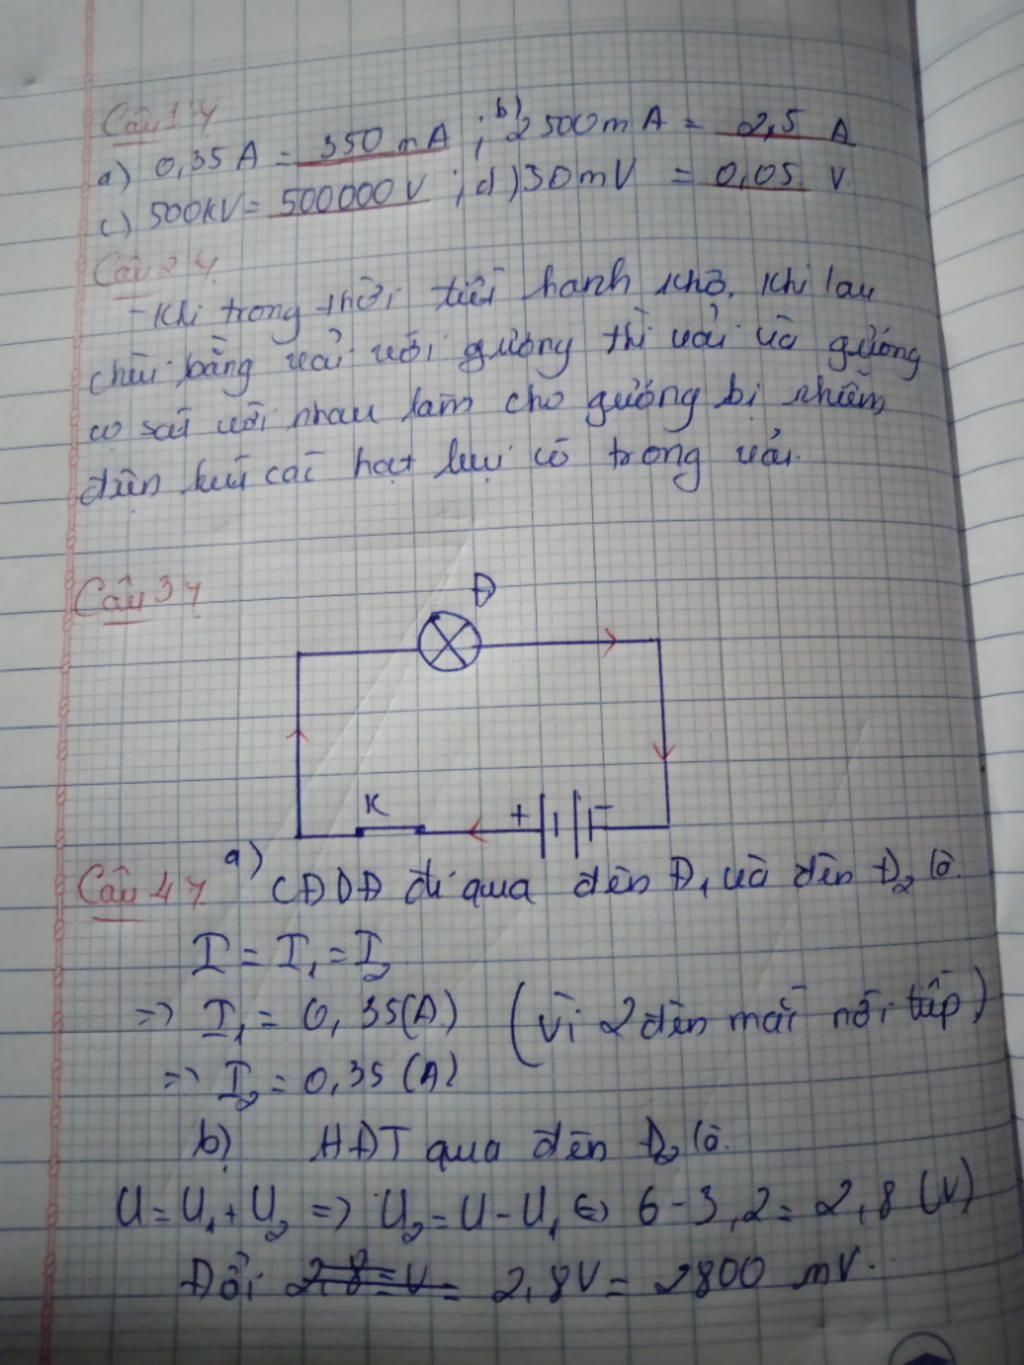 Câu 1 :
a) 0,35 A = 350 mA ; b) 2500mA = 2,5 A
c) 500kV = 500000 V ; d) 30mV = 0,05 V.
Câu 2 :
- Khi trong thời tiết hanh khô, khi lau
chùi bằng vải với gương thì vải và gương
cọ sát với nhau làm cho gương bị nhiễm
điện hút các hạt bụi có trong vải.
Câu 3 :
Đ
K
+ -
Câu 4 : a) CĐDĐ đi qua đèn Đ1 và đèn Đ2 là.
I = I1 = I2
=> I1 = 0,35(A) (Vì 2 đèn mắc nối tiếp)
=> I2 = 0,35 (A)
b) HĐT qua đèn Đ2 là.
U = U1 + U2 => U2 = U - U1 <=> 6 - 3,2 = 2,8 (V)
Đổi 2,8V = 2800 mV.